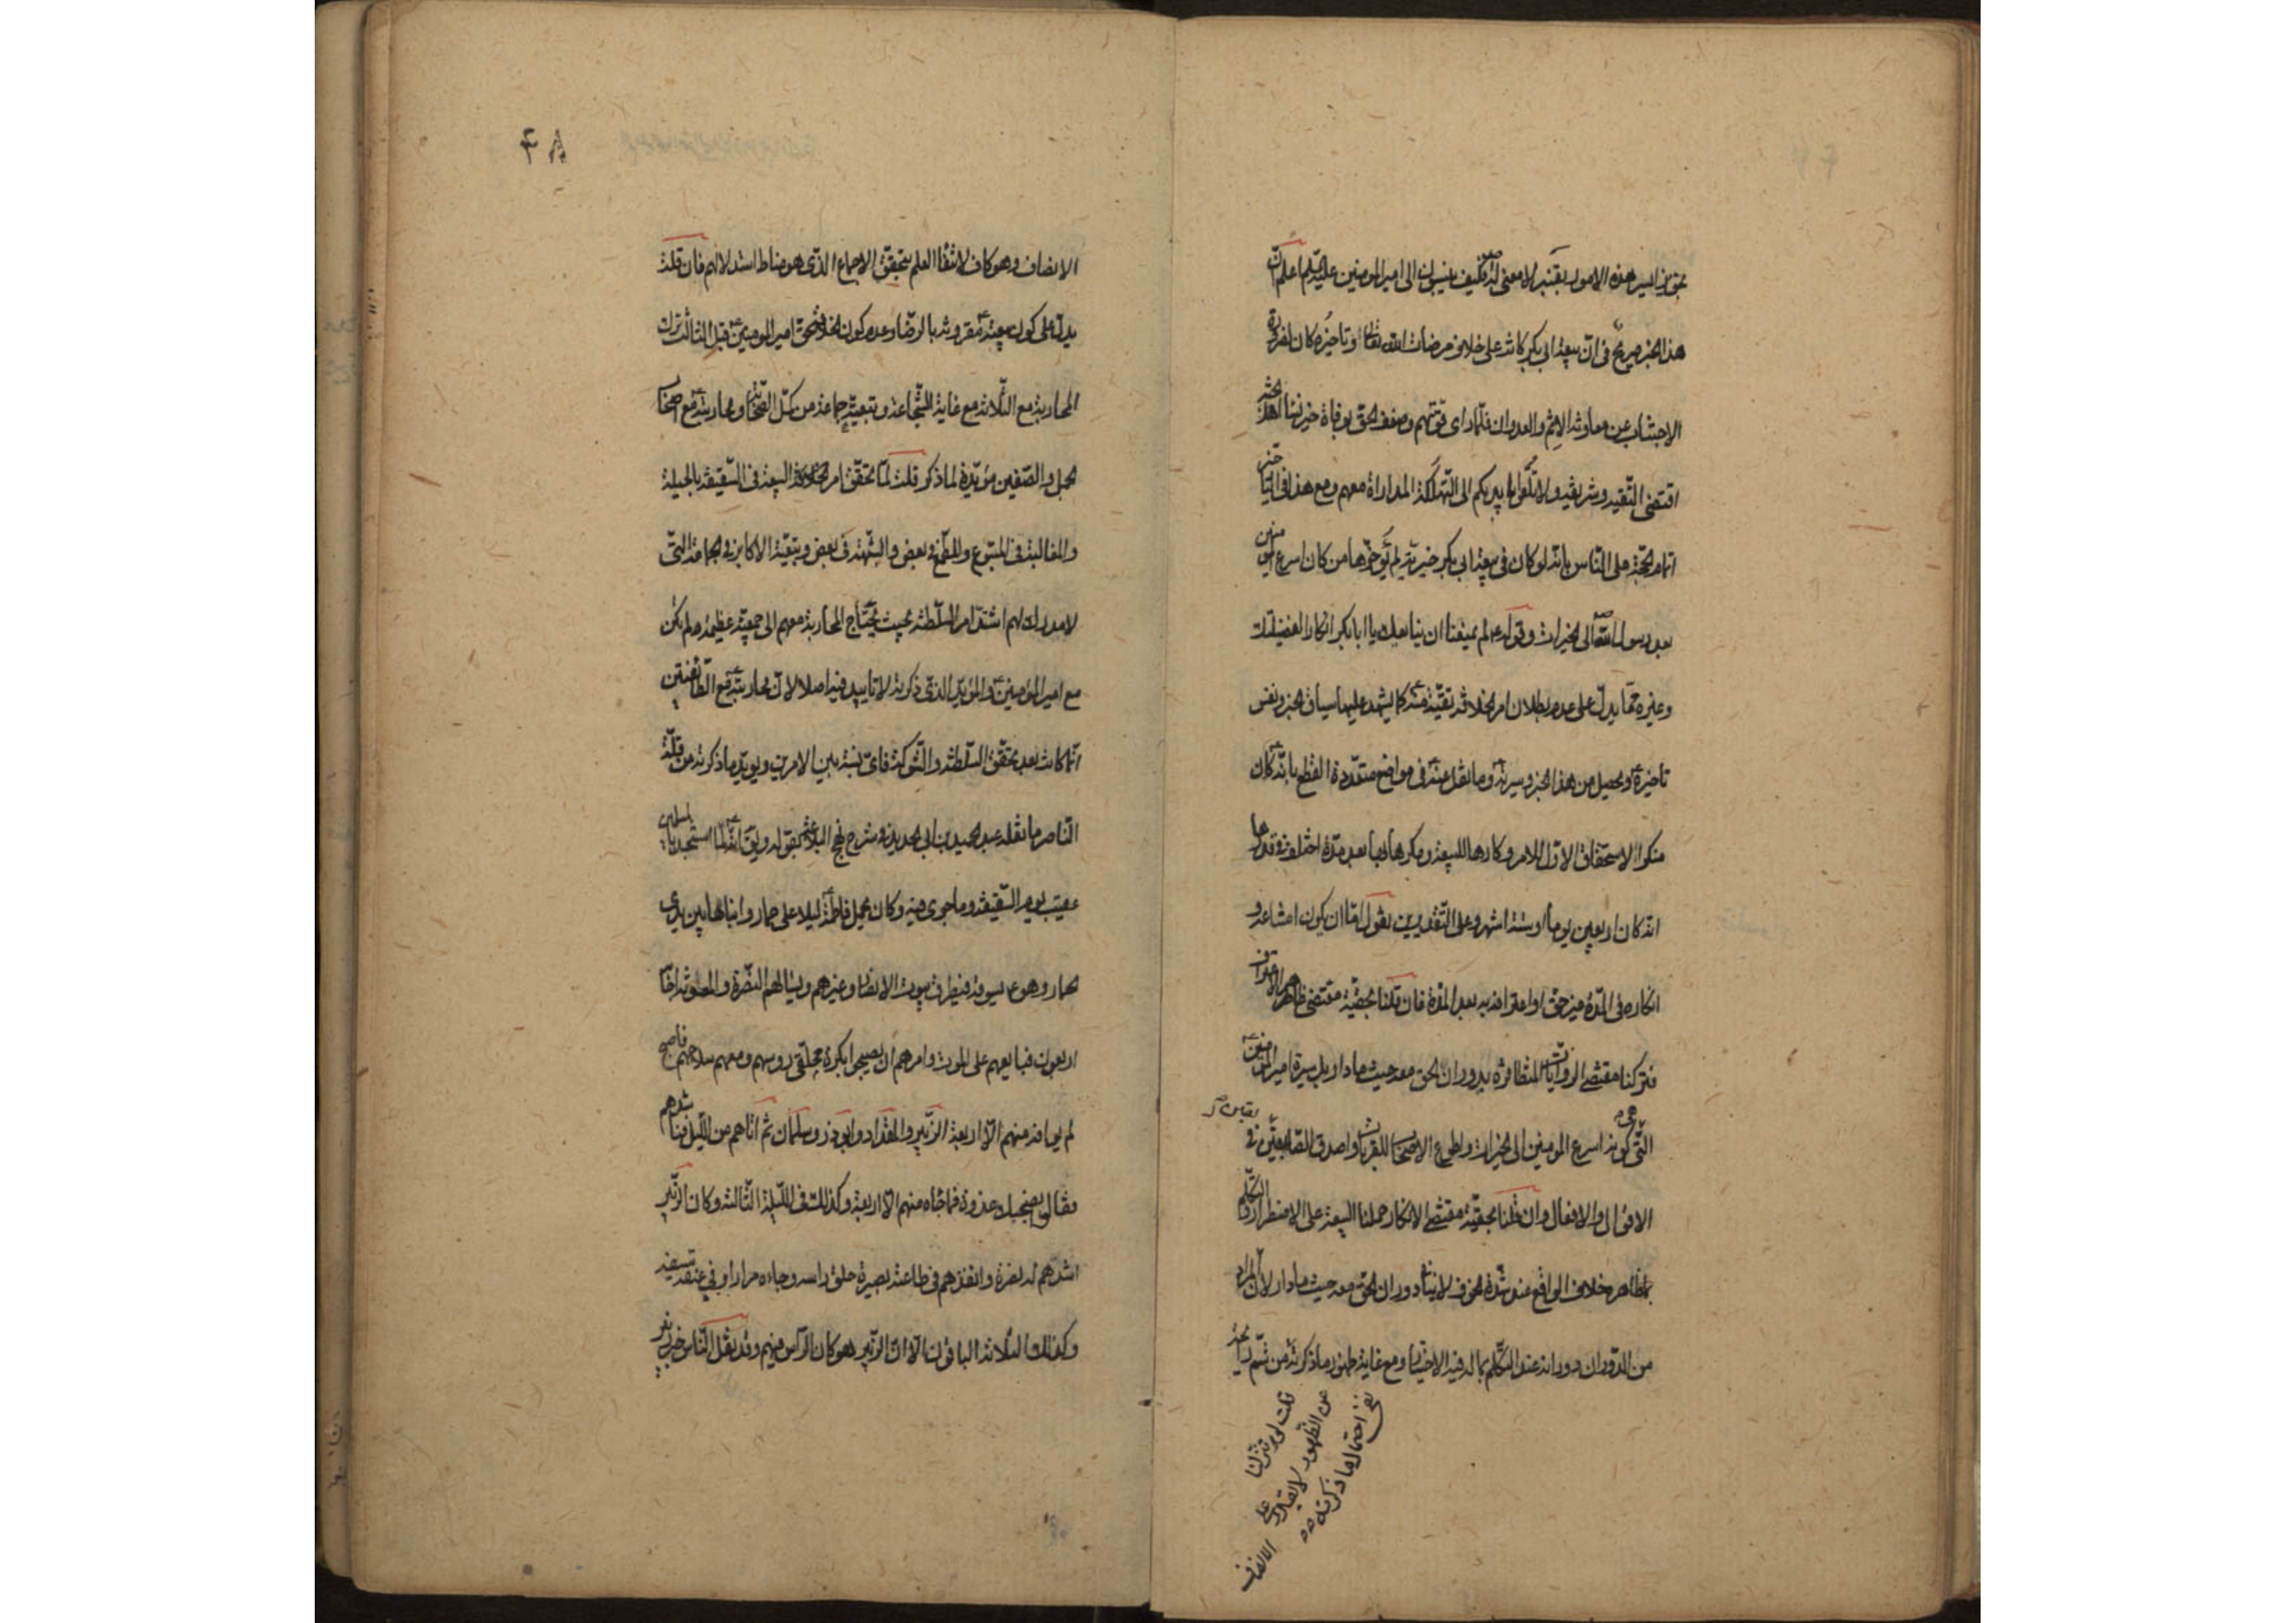 هذا الخبر صريح فى ان بيعة ابى بكر كانت على خلاف مرضات الله تعالى وتاخيره كان لضرورة
الاجتناب عن معاونة الاثم والعدوان فلما راى قوتهم وضعف الحق بوفاة خير نساء اهل الجنة
اقتضى التقية وشريفة ولا تلقوا بايديكم الى التهلكة المداراة معهم ومع هذا فى التاخير
اتمام الحجة على الناس بانه لو كان فى بيعة ابى بكر خيرية لم يؤخرها من كان اسرع المؤمنين
بعد رسول الله ص الى الخيرات وقوله ع لم يمنعنا ان نبايعك يا ابا بكر انكارا لفضيلتك
وغيره مما يدل على عدم بطلان امر الخلافة تقية منه كما يشهد عليها سياق الخبر ونفس
تاخيره ويحصل من هذا الخبر وسيرته وما نقل عنه فى مواضع متعددة القطع بانه كان
منكرا لاستحقاق الاول للامر وكارها للبيعة ومكرها بها بعد مدة اختلف فى قدرها
انه كان اربعين يوما او ستة اشهر وعلى التقديرين نقول اما ان يكون امتناعه و
انكاره فى المدة غير حق او اعترافه به بعد المدة فان قلنا بحقية مقتضى ظاهر الاعتراف
فتركنا مقتضى الروايات المتظافرة بدوران الحق معه حيث ما دار وبل سيرة امير المؤمنين
التى هى كونه اسرع المؤمنين الى الخيرات واطوع الاصحاب للقربات واصدق الصادقين فى
الاقوال والافعال وان قلنا بحقية مقتضى الانكار حملنا البيعة على الاضطرار والتكلم
بما ظاهره خلاف الواقع عند شدة الخوف لا ينافى دوران الحق معه حيث ما دار لان المراد
من الدوران دورانه عند التكلم بما له فيه الاختيار ومع غاية ظهور ما ذكرته من شم رائحة
قلت لو تنزلنا
عن الظهور لا يقدر على
نفى احتمال ما ذكرته
الانصاف
٤٨
الانصاف وهو كاف لانتفاء العلم بتحقق الاجماع الذى هو مناط استدلالهم فان قلت
يدل على كون بيعته ع مقرونة بالرضا وعدم كون الخلافة حق امير المومنين ع قبل الثالث ترك
المحاربة مع الثلاثة مع غاية الشجاعة وتبعية جماعة من كمل الصحابة ومحاربته ع مع اصحاب
الجمل والصفين مؤيدة لما ذكر قلت لما تحقق امر الخلافة البيعة فى السقيفة بالحيلة
والمغالبة فى المتبوع والطمع فى بعض والشبهة فى بعض وبتبعية الاكابر فى الجماعة التى
لا مدرك لهم اشتد امر السلطنة بحيث يحتاج المحاربة معهم الى جمعية عظيمة ولم يكن
مع امير المؤمنين ع والمؤيد الذى ذكرته لا تاييد فيه اصلا لان محاربته ع مع الطائفتين
انما كانت بعد تحقق السلطنة والشوكة فاى نسبة بين الامرين ويؤيد ما ذكرته من قلة
الناصر ما نقله عبد الحميد بن ابى الحديد فى شرح نهج البلاغة بقوله ويق انه ع لما استنجد بالمسلمين
عقيب يوم السقيفة وما جرى فيه وكان يحمل فاطمة ع ليلا على حمار وابناها بين يدى
الحمار وهو ع يسوقه فيطرق بيوت الانصار وغيرهم ويسالهم النصرة والمعونة اجابه
اربعون فبايعهم على الموت وامرهم ان يصبحوا بكرة محلقى رؤسهم ومعهم سلاحهم فاصبح
لم يوافه منهم الا اربعة الزبير والمقداد وابو ذر وسلمان ثم اتاهم من الليل فناشدهم
فقالوا نصبحك غدوة فما جاءه منهم الا اربعة وكذلك فى الليلة الثالثة وكان الزبير
اشدهم له نصرة وانفذهم فى طاعته بصيرة حلق راسه وجاءه مرارا وفى عنقه سيفه
وكذلك الثلاثة الباقون الا ان الزبير هو كان الراس فيهم وقد نقل الناس خبر الزبير